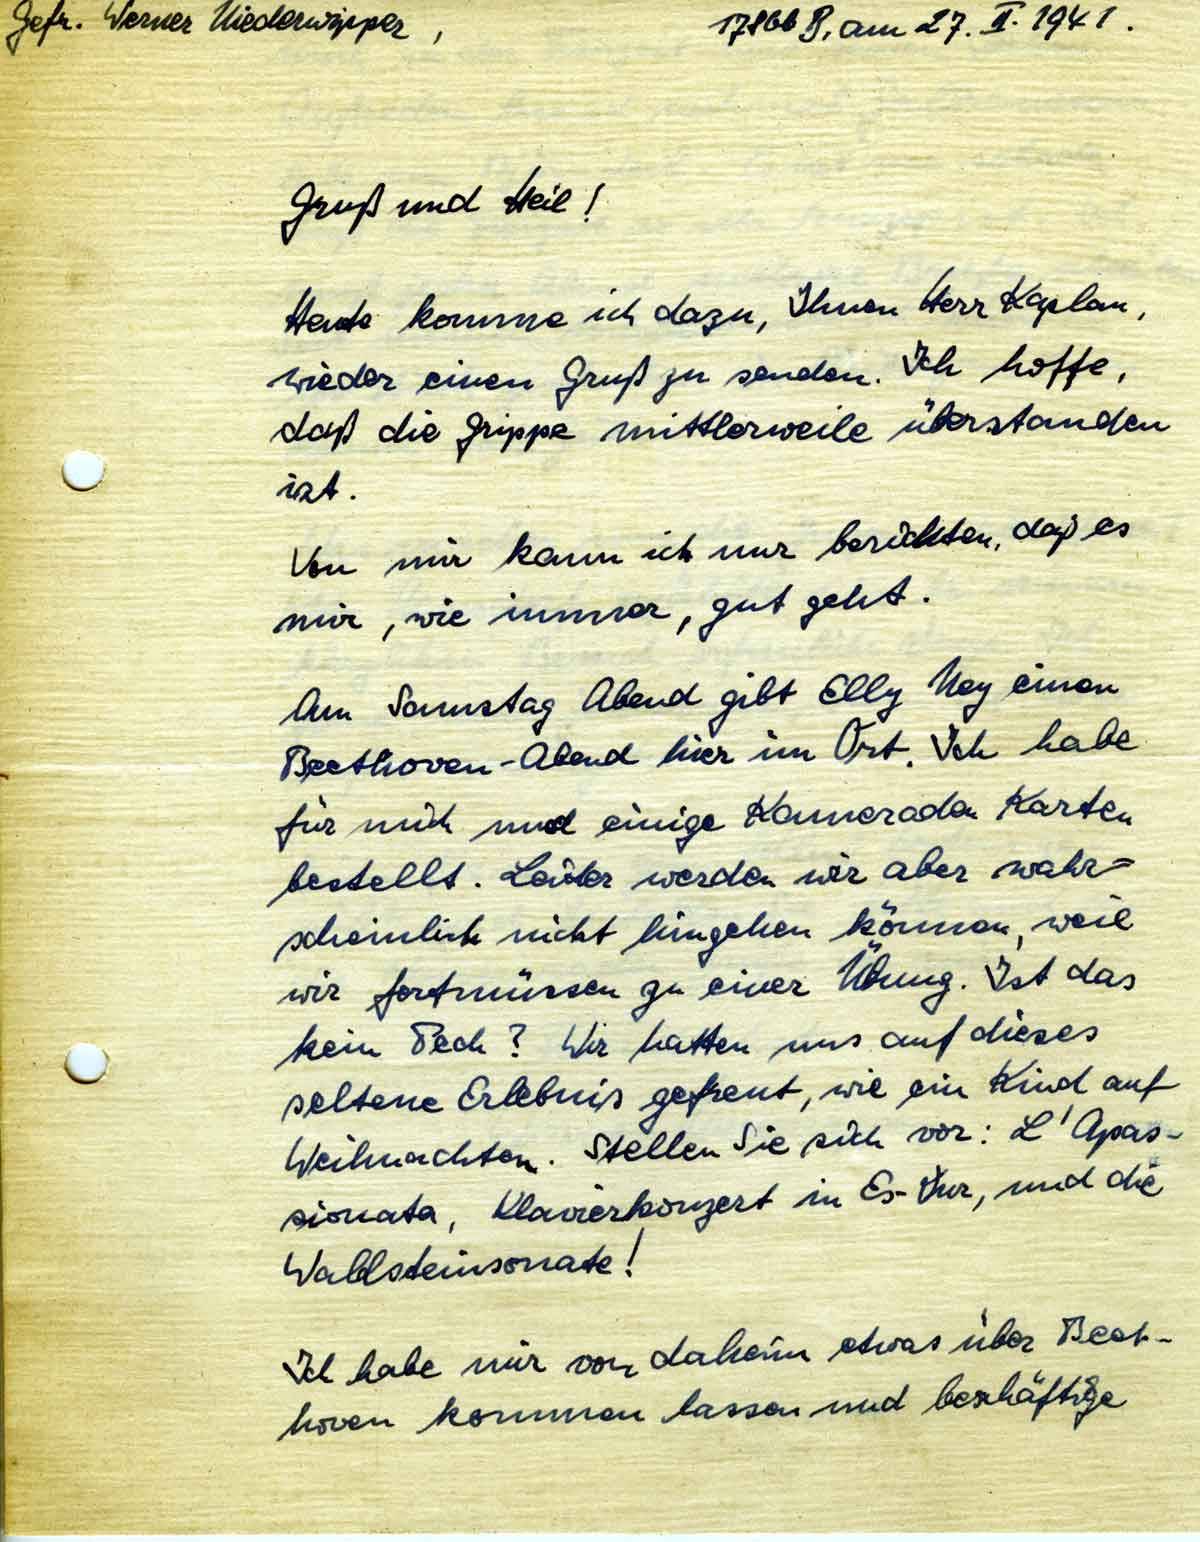 Gefr. Werner Niederwöpper, 17866 B, am 27. II. 1941.
Gruß und Heil!
Heute komme ich dazu, Ihnen Herr Kaplan,
wieder einen Gruß zu senden. Ich hoffe,
daß die Grippe mittlerweile überstanden
ist.
Von mir kann ich nur berichten, daß es
mir, wie immer, gut geht.
Am Samstag Abend gibt Elly Ney einen
Beethoven-Abend hier im Ort. Ich habe
für mich und einige Kameraden Karten
bestellt. Leider werden wir aber wahr=
scheinlich nicht hingehen können, weil
wir fortmüssen zu einer Übung. Ist das
kein Pech? Wir hatten uns auf dieses
seltene Erlebnis gefreut, wie ein Kind auf
Weihnachten. Stellen Sie sich vor: L'Apas-
sionata, Klavierkonzert in Es-Dur, und die
Waldsteinsonate!
Ich habe mir von daheim etwas über Beet-
hoven kommen lassen und beschäftige